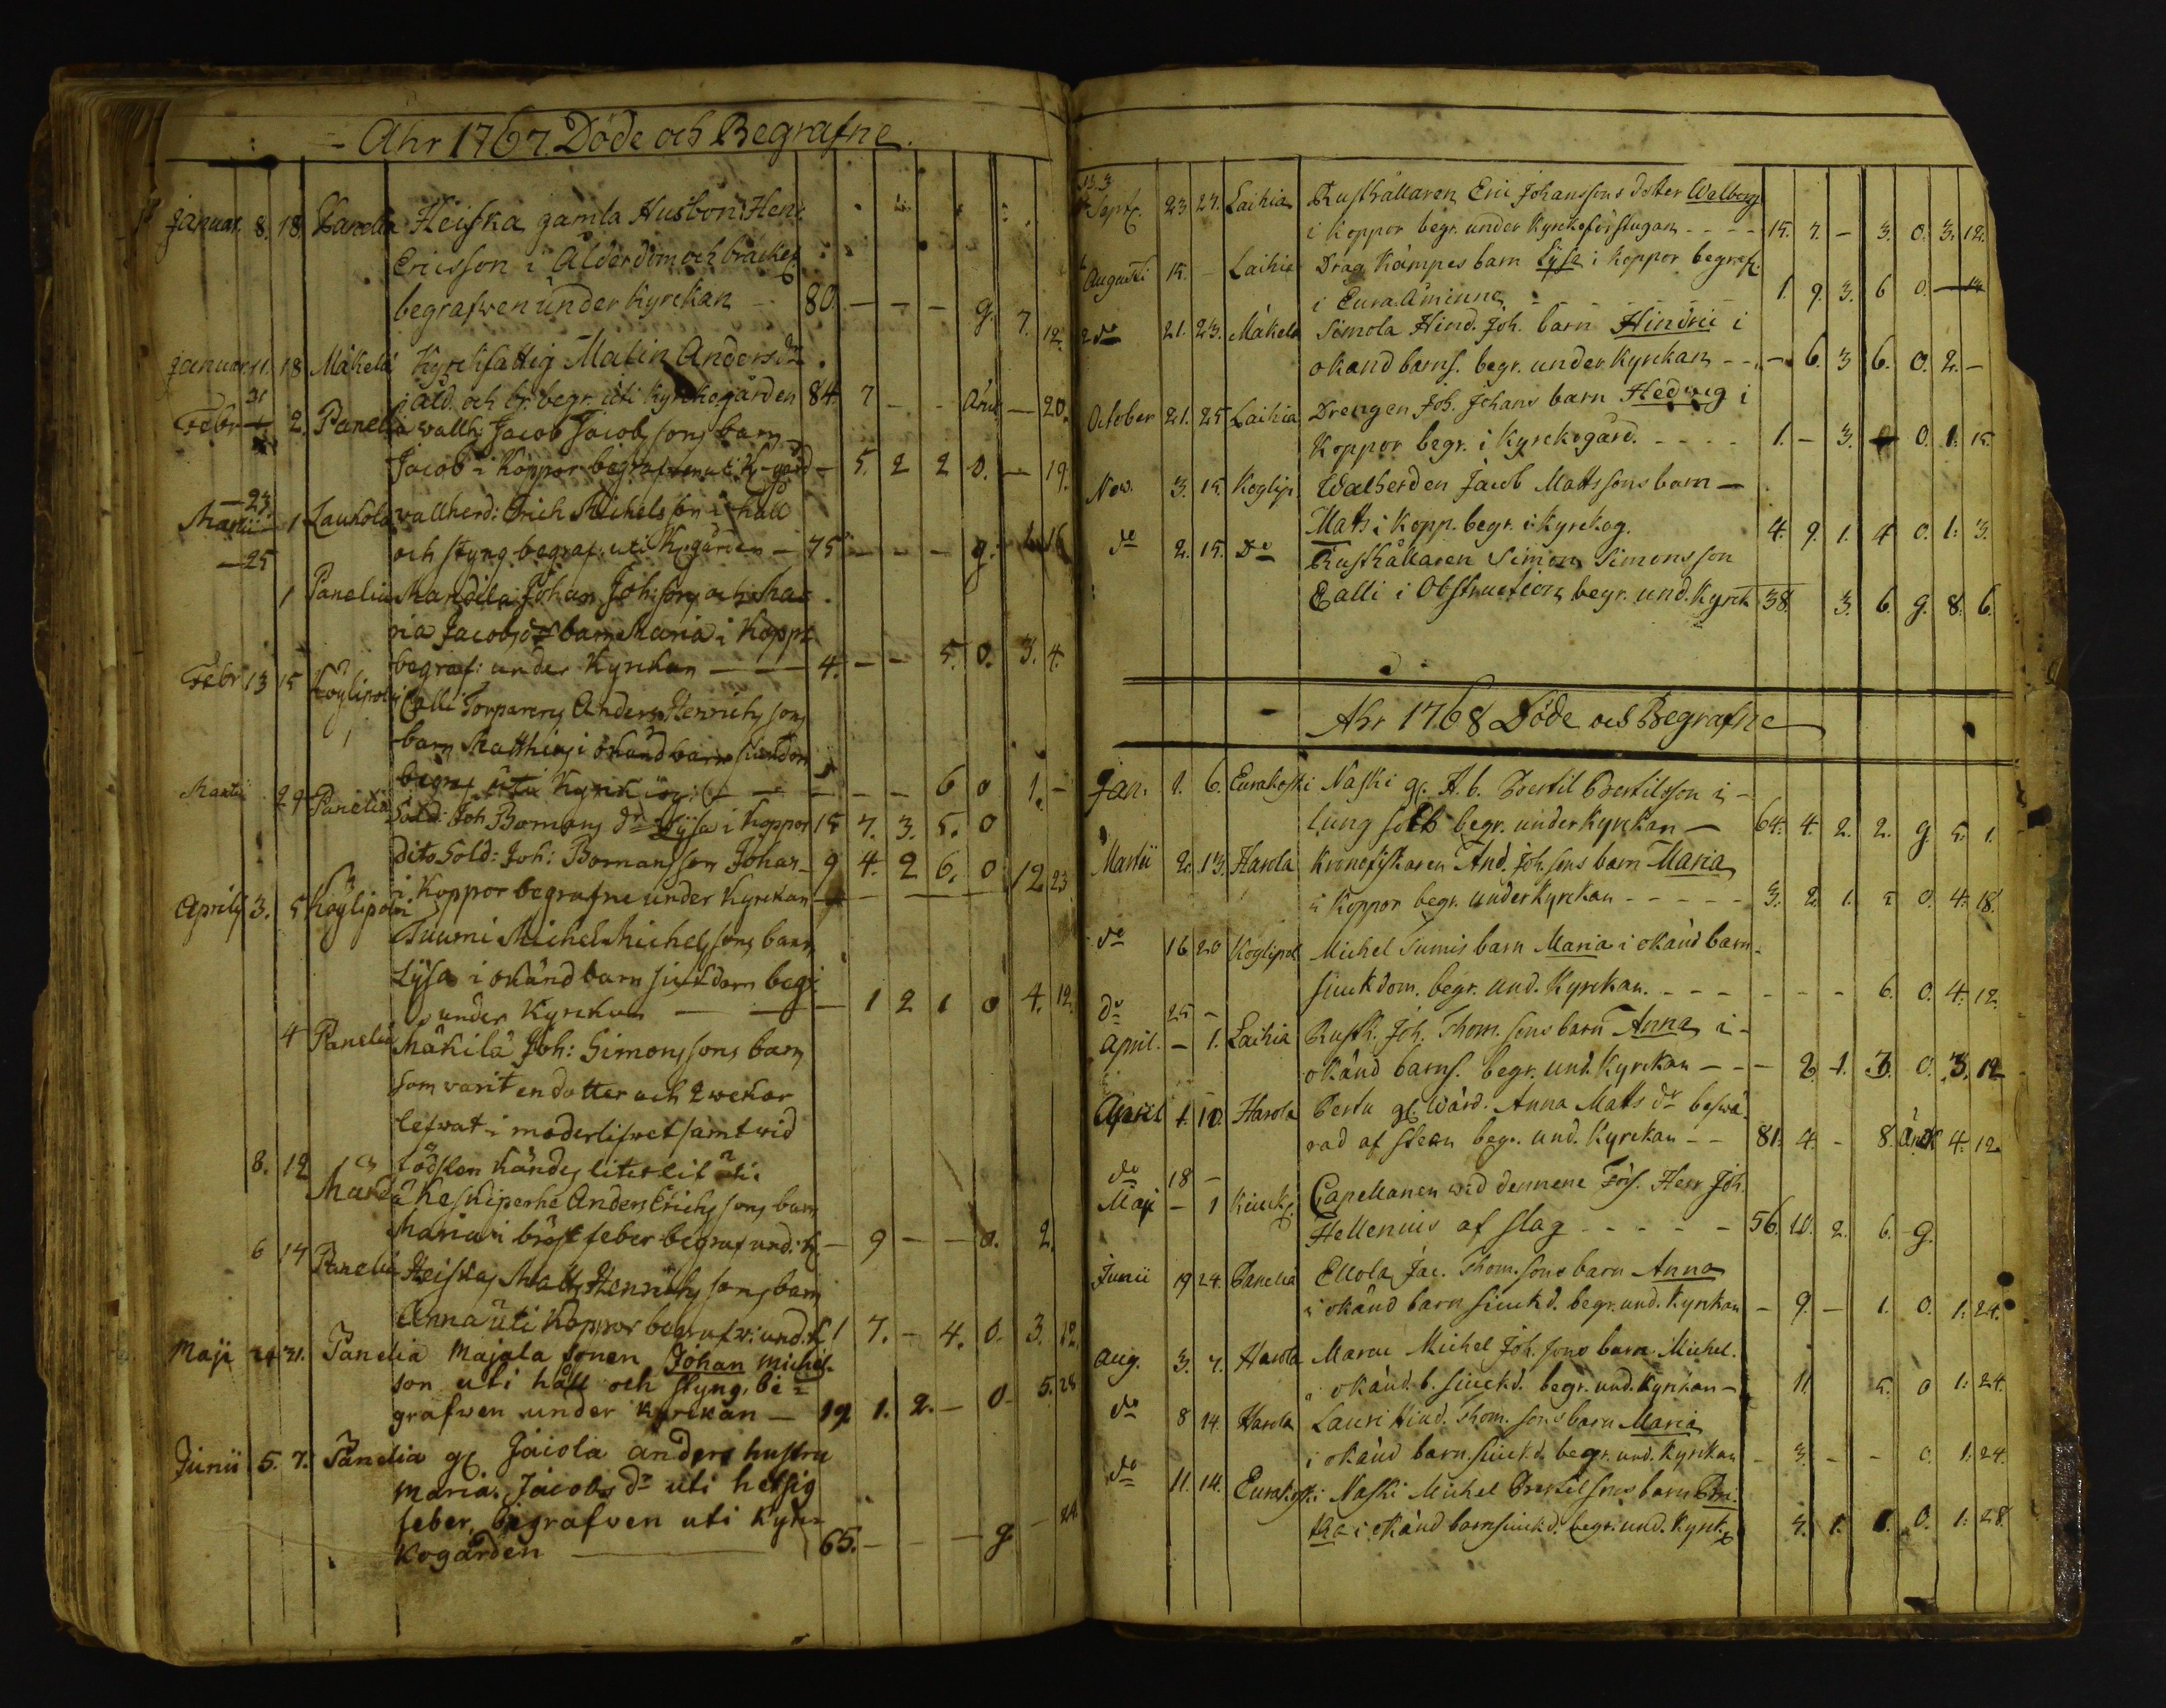 Ahr 1767. Döde och Begrafne.
Januar. 8. 18. Panelia Heiska gamla Husbon: Hen:
Ericsson i Ålderdom och bräckel
begrafwen under Kyrckan 80. — — — g. 7. 12.
Januar 11. 18 Mäkelä Kyrckfattig Malin Anders dr
i åld. och br. begr. uti Kyrckogården 84. 7 — — — 20.
31
Febr 2. Panelia wallh: Jacob Jacobsons barn
Jacob i Koppor begrafwen uti K-gård — 5. 2 2 0. — 19.
— 23.
Martii 1 Laukola wallherd: Erich Michelsson i håll
och styng begraf: uti K:gården — 75 — — — g. 16
— 25
1 Panelia Mandila Johan Joh:sons och Ma-
ria Jacobs dr barn Maria i Koppr
begraf: under Kyrckan — — 4. — — 5. 0. 3. 4.
Febr 13 15 Köylipolvi Calli Torparens Anders Henrichssons
barn Matthias i okänd barn siukdom
begr uti Kyrck — — — 6 0 1. —
Martii 29 Panelia Sold: Joh. Bomans dr Lysa i Koppor 15 7. 3. 5. 0
dito Sold: Joh: Bomans son Johan 9 4. 2 6. 0 12 23
i Koppor begrafne under Kyrckan
Aprilis 3. 5 Köylipolvi
Tuumi Michel Michelssons barn
Lysa i okänd barn siukdom begr:
under Kyrckan — — 1 2 1 0 4. 12.
4 Panelia Mäkilä Joh: Simonssons barn
som varit en dotter och 2 wekor
lefwat i moderlifwet samt wid
födslen kändes litet lif i.
8. 12
Keskiperhe Anders Erichssons barn
Maria i bröst feber begraf und: K. — 9 — — 0. 2.
6 14 Panelia Heiska Matts Henrichssons barn
Anna uti Koppor begrafw: und. K 1 7. — 4. 0. 3. 12.
Maji 24 31. Panelia Majala sonen Johan Michels-
son uti håll och styng, be-
grafwen under kyrckan — 19 1. 2. — 0 5. 28
Junii 5. 7. Panelia gl Jaiola anders hustru
Maria Jacobs dr uti hetsig
feber, begrafven uti kyr-
kogården — 65. — — — g — 24.
Sept. 23 27. Laihia Rusthållaren Eric Johanssons dotter Walborg
i Koppor begr. under Kyrckoförstugan - - - - 15. 7. — 3. 0. 3. 12.
Augusti 15. — Laihia Dräg Kämpes barn Lysa i Koppor begraf.
i Eura Åminne 1. 9. 3. 6 0.
do 21. 23. Mäkelä Simola Hind. Joh. barn Hindric i
okänd barns. begr. under Kyrckan - - — 6. 3 6. 0. 2. —
October 21. 25 Laihia Drengen Joh. Johans barn Hedwig i
Koppor begr. i Kyrckogård. - - - - 1. — 3. 0. 1. 15.
Nov. 3. 15. Koylip. Walherden Jacob Matssons barn —
Mats i Kopp. begr. i Kyrckog. 4. 9. 1. 4 0. 1: 3.
do 2. 15. do Rusthållaren Simon Simonsson
Calli i Obstruction, begr. und. Kyrck 38 3. 6. g. 8. 6.
Ahr 1768 Döde och Begrafne
Jan. 1. 6. Eurakoski Naski gl. H. b. Bertil Bertilsson i
lung sot begr. under Kyrckan — 64. 4. 2. 2. g. 5. 1.
Martii 2. 13. Harola Kronofiskaren And. Joh.sons barn Maria
i Koppor begr. under kyrckan - - - - - 3. 2. 1. 5 0. 4. 18.
do 16 20 Koylipol. Michel Tumis barn Maria i okänd barn-
siuckdom. begr. und. Kyrckan. - - - - - - 6. 0. 4. 12.
do 25 —
April. — 1. Laihia Rusth. Joh. Thom.sons barn Anna i
okänd barns. begr. und. Kyrckan - - - 2. 1. 3. 0. 3. 12
April 1. 10. Harola Pertu gl. Wärd. Anna Mats dr beswä-
rad af sten begr. und. Kyrckan - - 81. 4. — 8. 4. 12.
do 18 —
Maji — 1 Kiuck. Capellanen wid dennene Förs. Herr Joh.
Hellenius af slag - - - - - 56. 10. 2. 6. g.
Junii 19 24. Panelia Ellola Jac. Thom.sons barn Anna
i okänd barn siuckd. begr. und. Kyrckan — 9. — 1. 0. 1: 24.
Aug. 3. 7. Harola Marcu Michel Joh.sons barn Michel.
i okänd. b. siuckd. begr. und. Kyrckan — 11. 5. 0 1: 24.
do 8 14. Harola Lauri Hind. Thom.sons barn Maria
i okänd barn.siuckd. begr. und. Kyrckan — 3. — — 0. 1: 24.
do 11. 14. Eurakoski Naski Michel Bertilsons barn Bri-
tha i okänd barnsiuckd. begr. und. Kyrck. 3. 1. 1. 0. 1: 28.